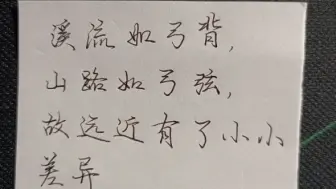 溪流如弓背，
山路如弓弦，
故远近有了小小
差异